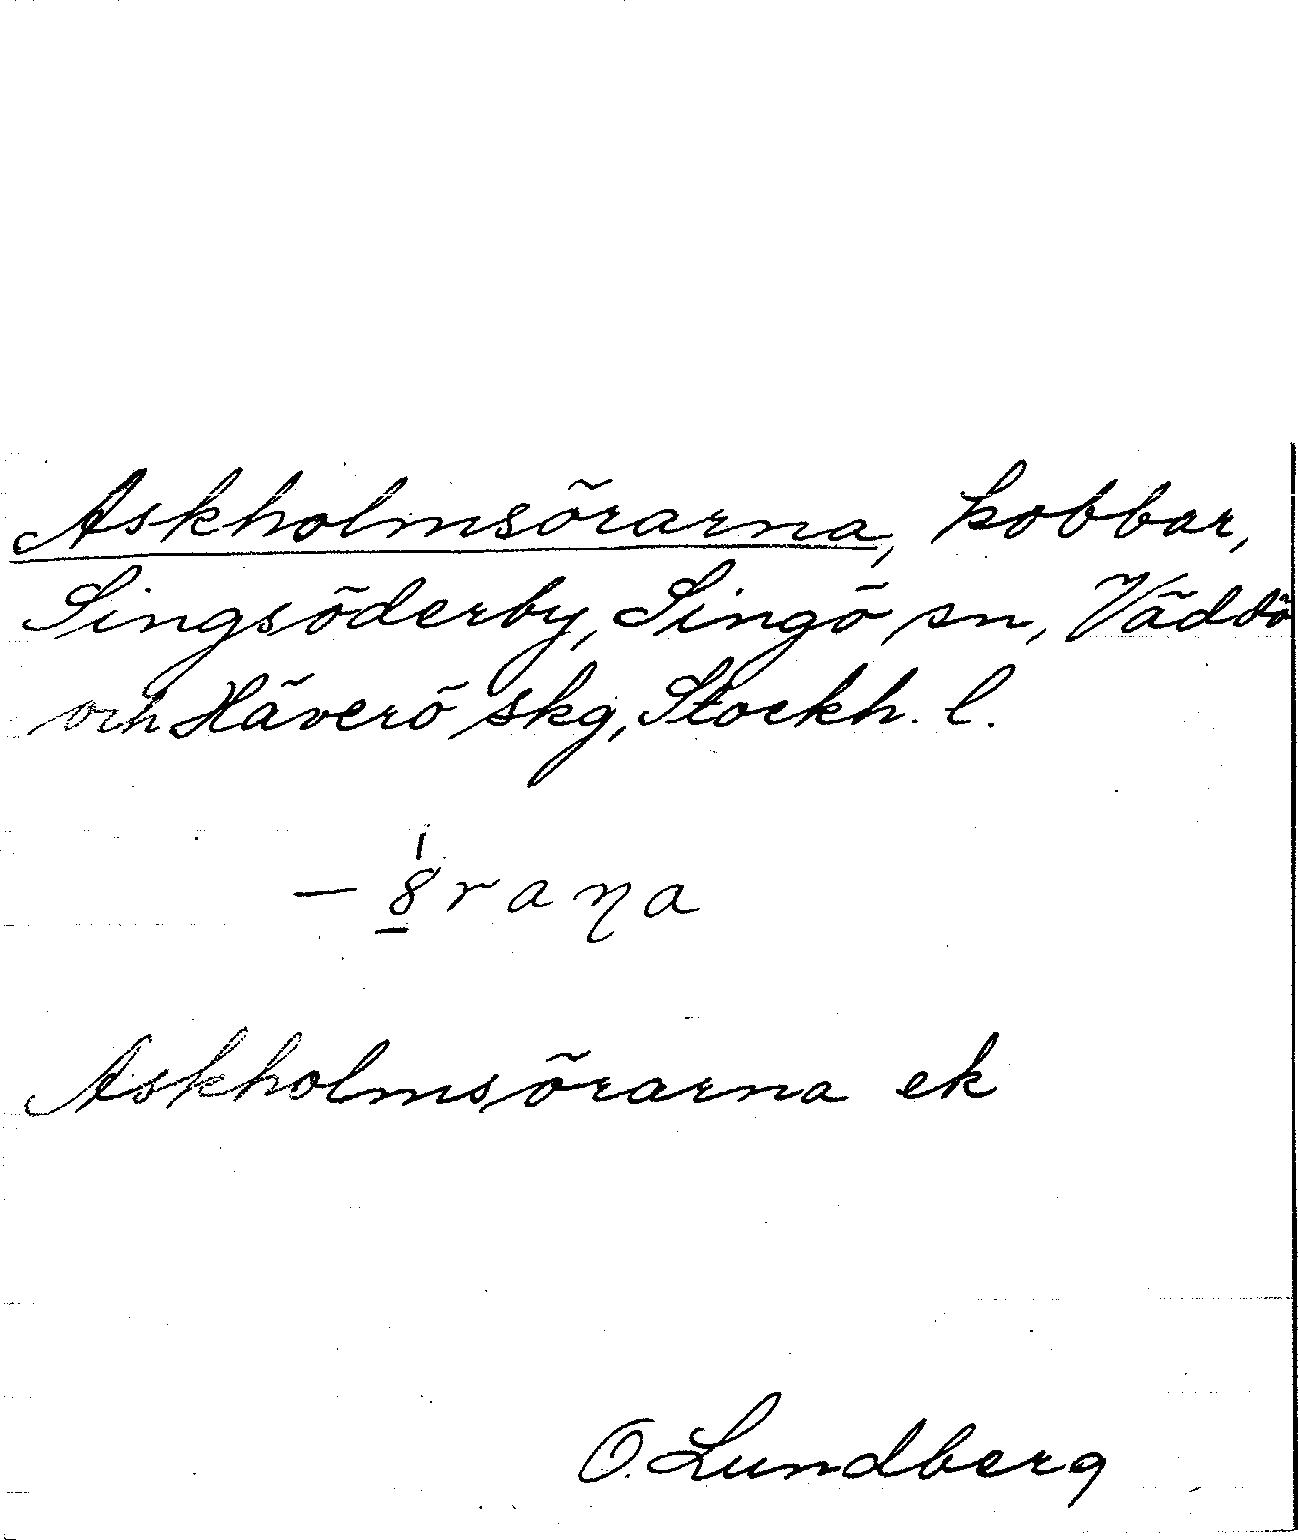 Askholmsörarna, kobbar,
Singsöderby, Singö sn, Väddö
och Häverö skg, Stockh. l.
– 8̲́raɳa
Askholmsörarna ek
O. Lundberg